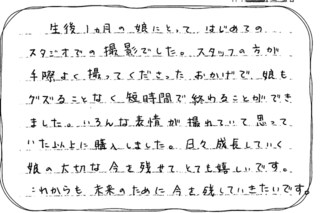 生後1ヵ月の娘にとって はじめての
スタジオでの撮影でした。スタッフの方が
手際よく撮ってくださった おかげで、娘も
グズることなく短時間で終わることができ
ました。いろんな表情が撮れていて思って
いた以上に購入しました。日々成長していく
娘の大切な今を残せて とても嬉しいです。
これからも 未来のために 今を残していきたいです。